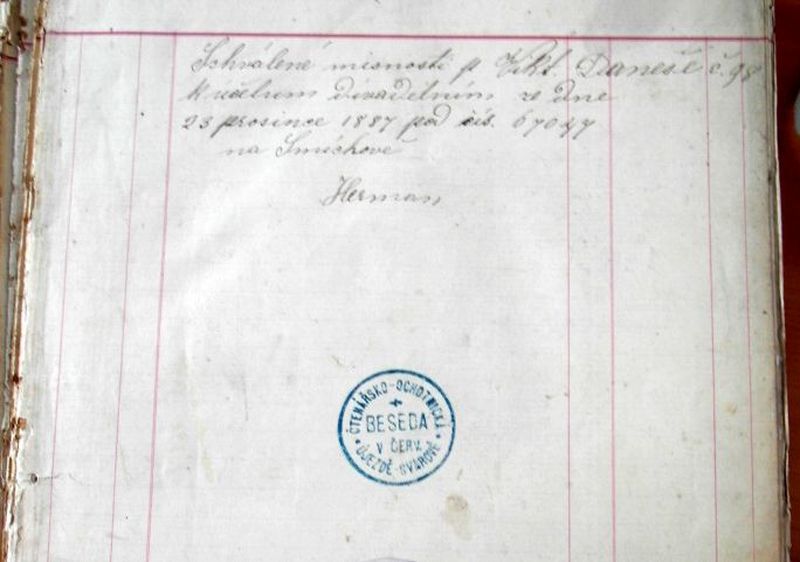 Schválené místnosti p. Vikt. Daneše č. 98
k účelům divadelním ze dne
23 prosince 1887 pod čís. 67047
na Smíchově
Herman
ČTENÁŘSKO-OCHOTNICKÁ
BESEDA
V ČERV.
ÚJEZDĚ-SVÁROVĚ